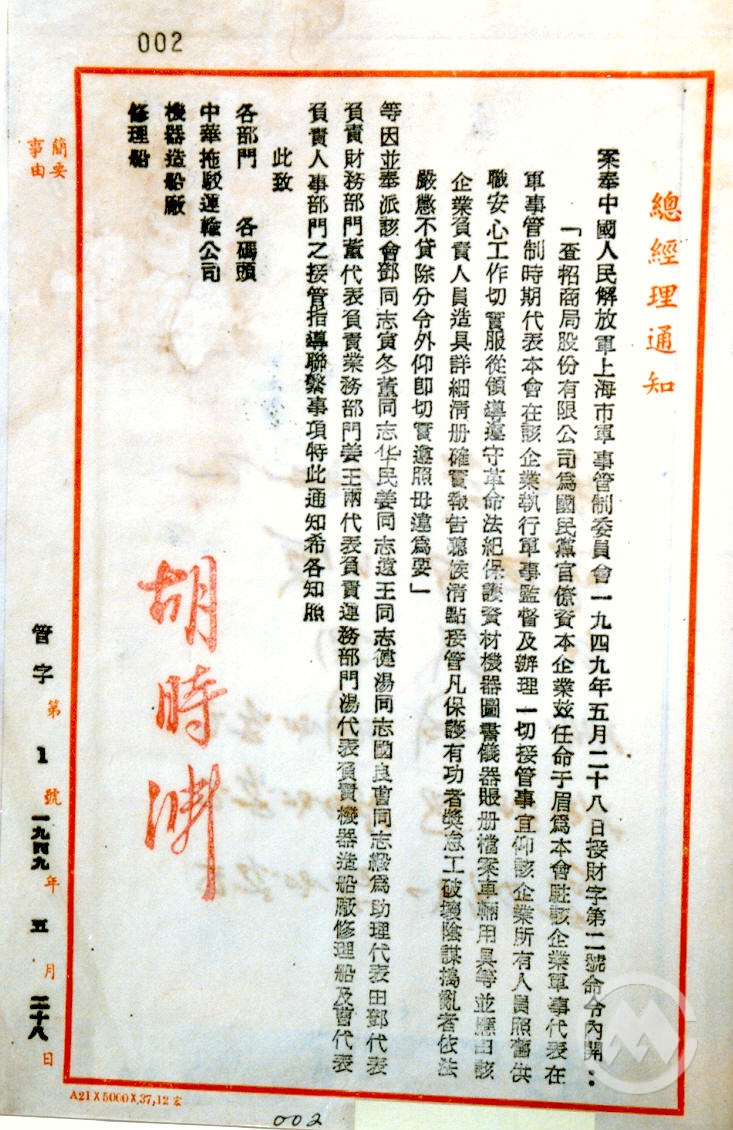 002
總經理通知
案奉中國人民解放軍上海市軍事管制委員會一九四九年五月二十八日接財字第二號命令內開：
「查招商局股份有限公司爲國民黨官僚資本企業茲任命于眉爲本會駐該企業軍事代表在
軍事管制時期代表本會在該企業執行軍事監督及辦理一切接管事宜仰該企業所有人員照舊供
職安心工作切實服從領導遵守革命法紀保護資材機器圖書儀器賬册檔案車輛用具等並應由該
企業負責人員造具詳細清册確實報告聽候清點接管凡保護有功者獎怠工破壞陰謀搗亂者依法
嚴懲不貸除分令外仰卽切實遵照毋違爲要」
等因並奉派該會鄧同志寅冬董同志华民姜同志遠王同志德湯同志國良曹同志緞爲助理代表田鄧代表
負責財務部門董代表負責業務部門姜王兩代表負責運務部門湯代表負責機器造船廠修理船及曹代表
負責人事部門之接管指導聯繫事項特此通知希各知照
此致
各部門 各碼頭
中華拖駁運輸公司
機器造船廠
修理船
胡時淵
簡要事由
管字第1號一九四九年五月二十八日
A21X5000X,37,12宏
002